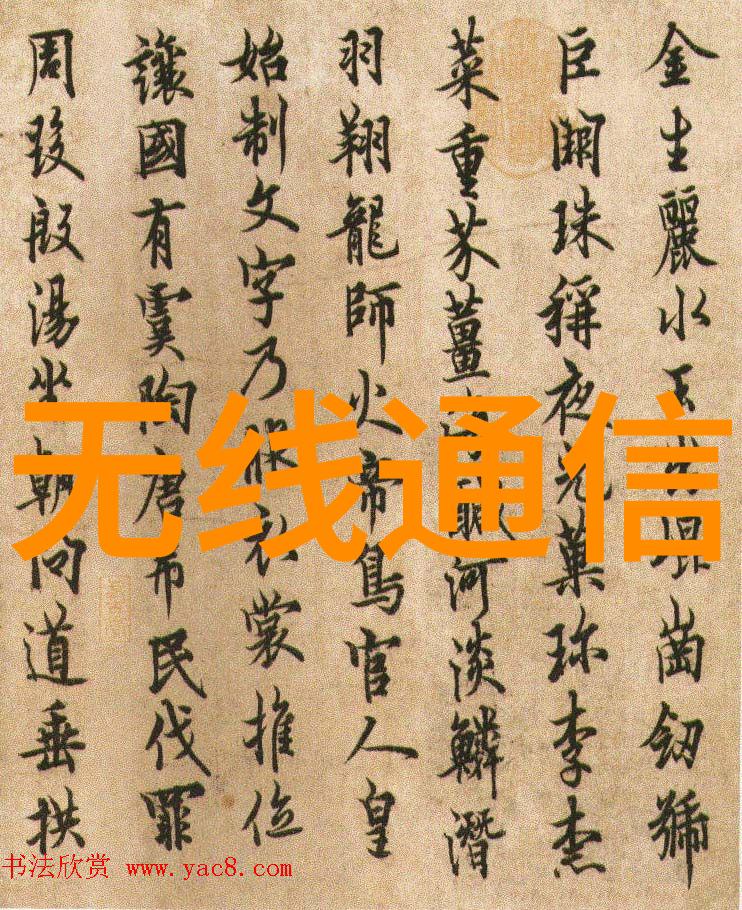 金生麗水玉出崐崗劒號
巨闕珠稱夜光菓珎李柰
菜重芥薑海鹹河淡鱗潛
羽翔龍師火帝鳥官人皇
始制文字乃服衣裳推位
讓國有虞陶唐弔民伐罪
周發殷湯坐朝問道垂拱
无线通信
书法欣赏 www.yac8.com